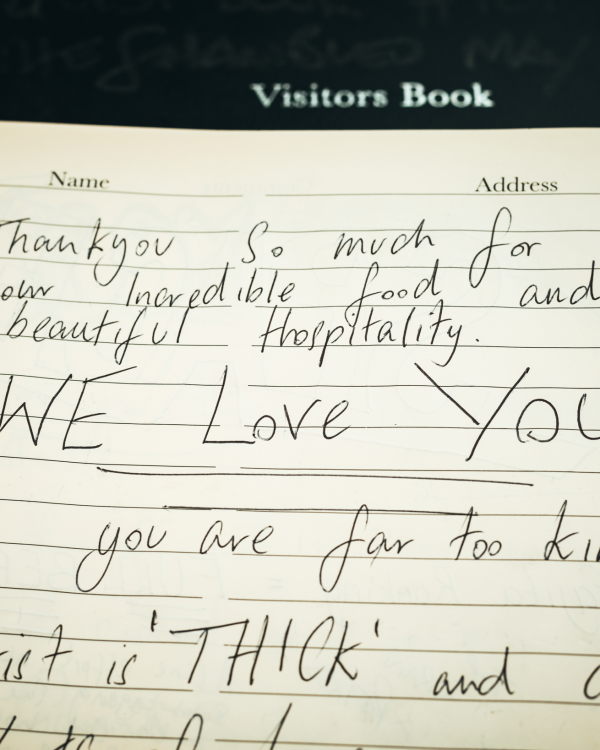 Visitors Book
Name Address
Thankyou So much for
our Incredible food and
beautiful Hospitality.
WE Love YOU
you are far too
is 'THICK' and